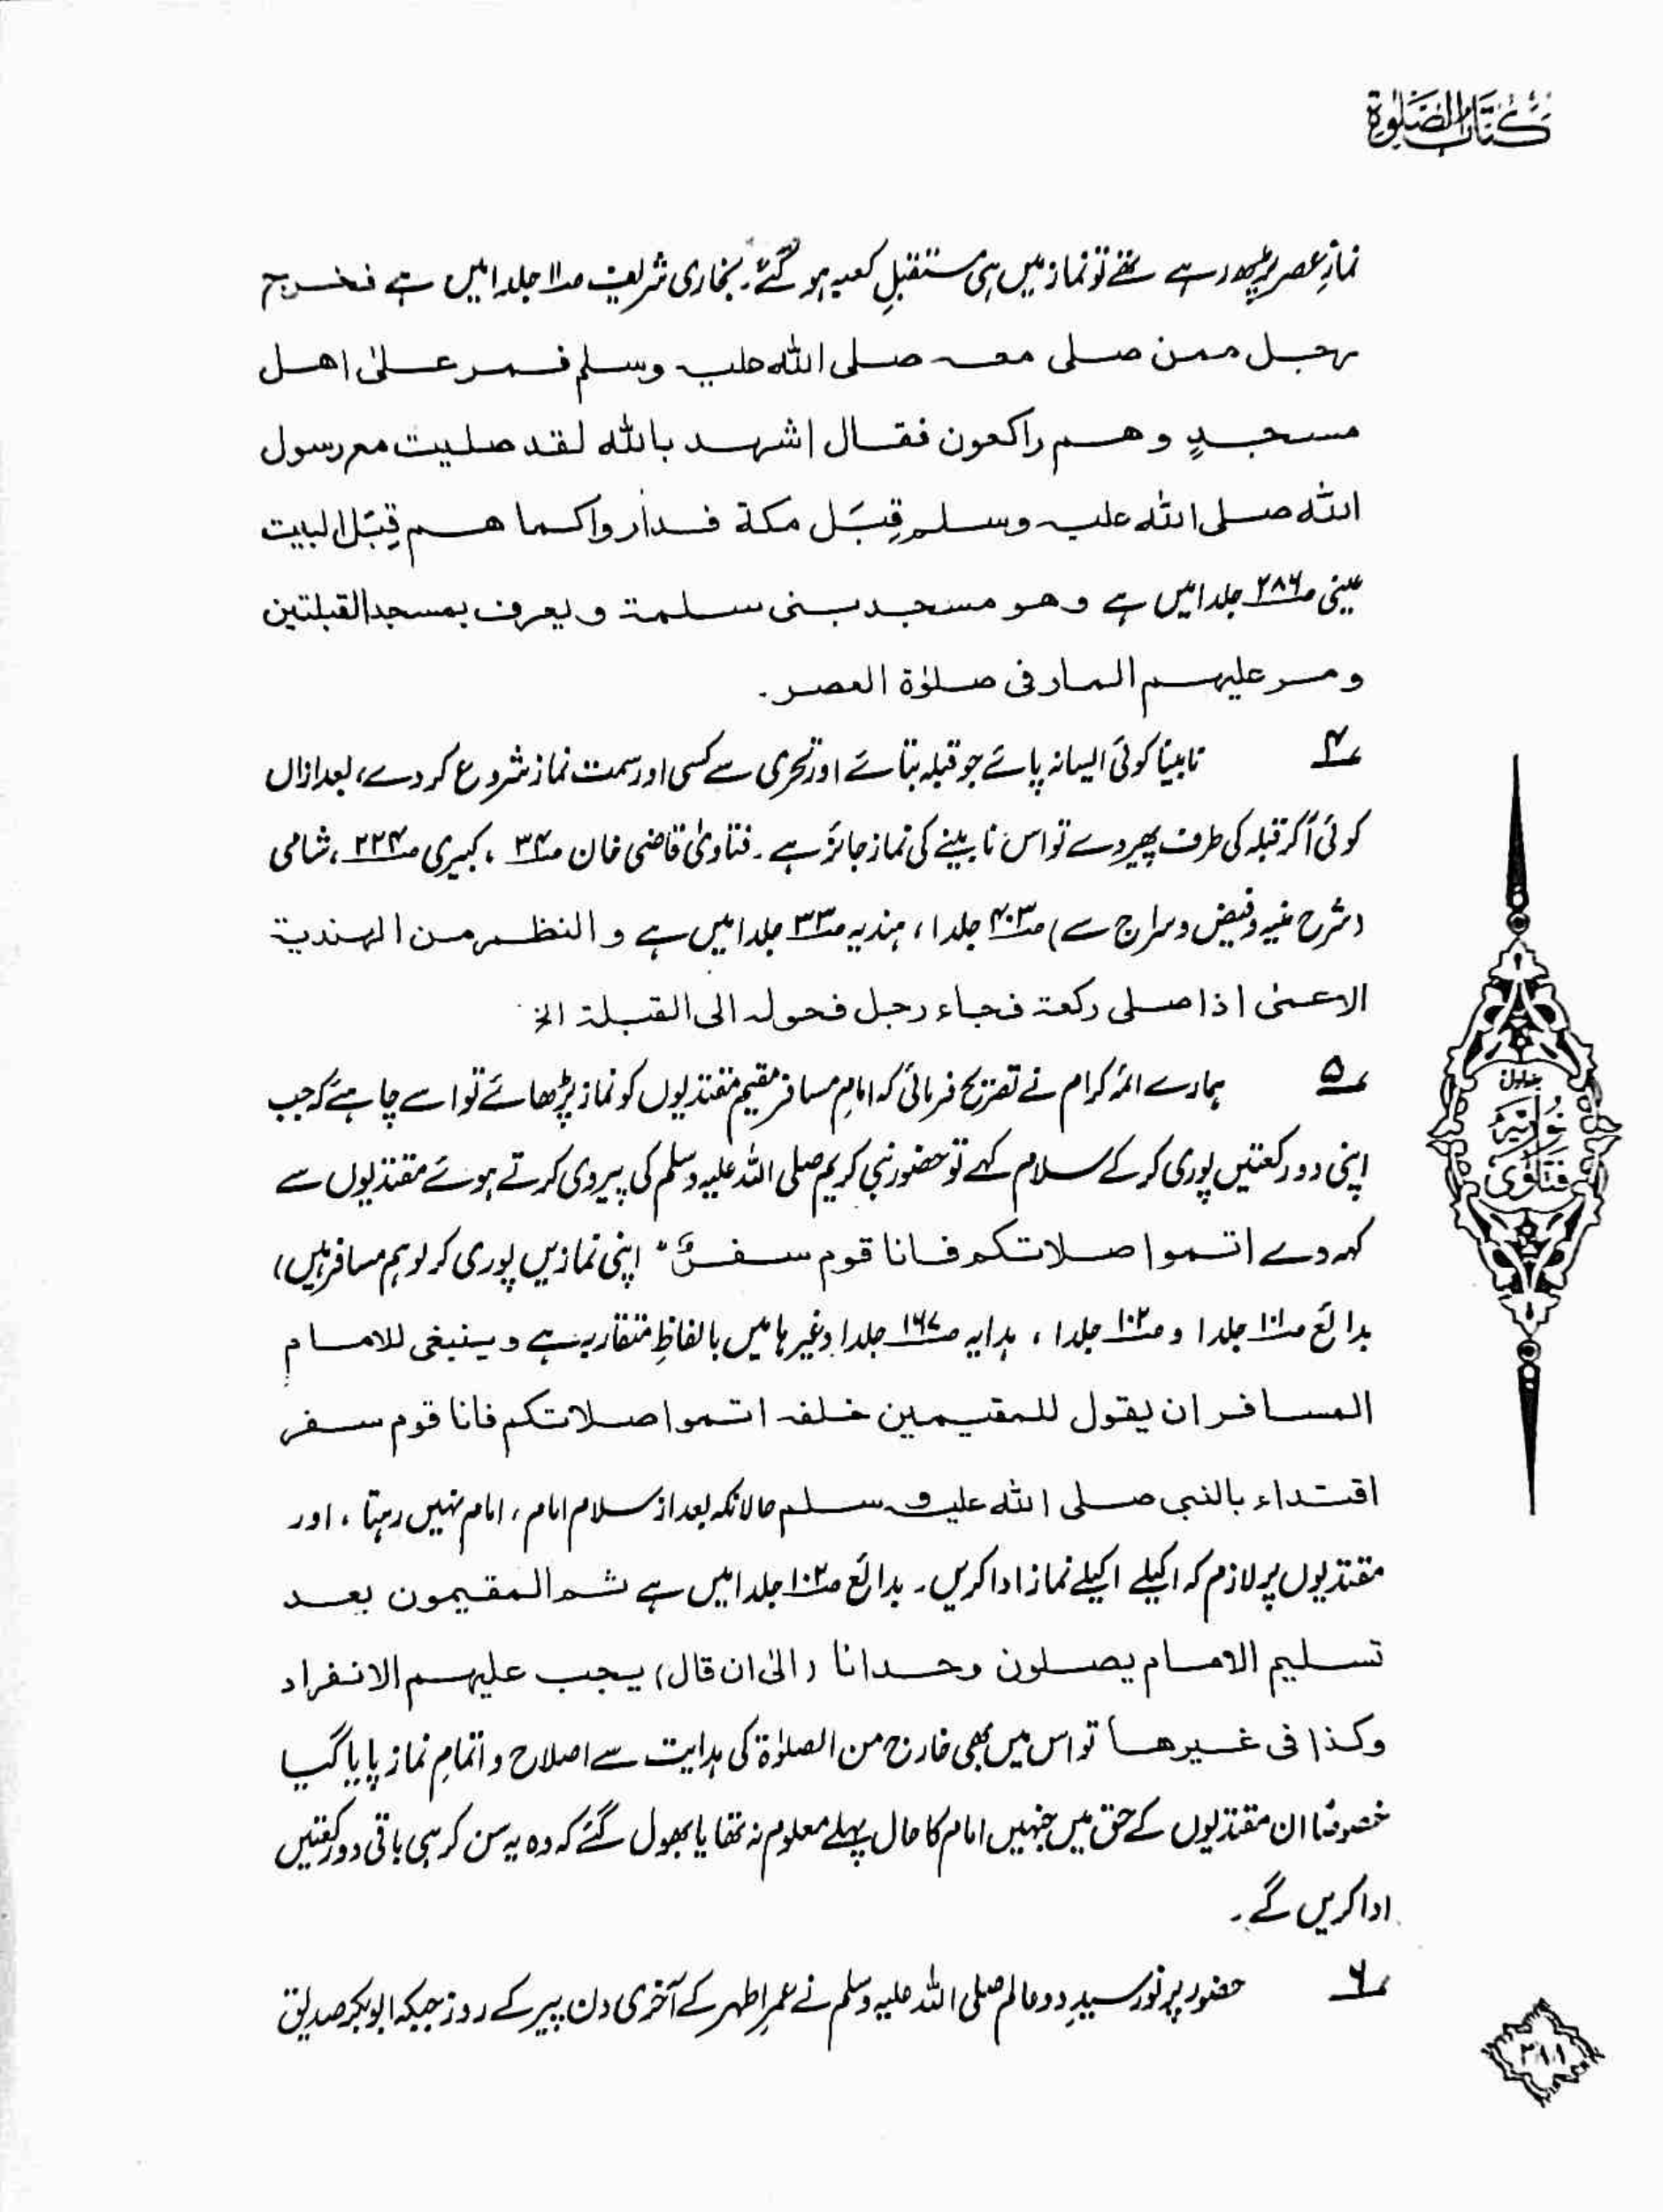 كتاب الصلوة
نمازِ عصر پڑھ رہے تھے تو نماز میں ہی مستقبلِ کعبہ ہو گئے۔ بخاری شریف صـ١١ جلد ١ میں ہے فخرج
رجل ممن صلى معه صلى الله عليه وسلم فمر على اهل
مسجدٍ وهم راكعون فقال اشهد بالله لقد صليت مع رسول
الله صلى الله عليه وسلم قِبَل مكة فداروا كما هم قِبَل البيت
عینی صـ٢٨٦ جلد ١ میں ہے وهو مسجد بنى سلمة ويعرف بمسجد القبلتين
ومر عليهم المار فى صلوٰة العصر۔
٤ نابینا کوئی ایسا نہ پائے جو قبلہ بتائے اور تحری سے کسی اور سمت نماز شروع کر دے، بعد ازاں
کوئی آ کر قبلہ کی طرف پھیر دے تو اس نابینے کی نماز جائز ہے۔ فتاویٰ قاضی خان صـ٣٤، کبیری صـ٢٢٤، شامی
(شرح منیہ و فیض و سراج سے) صـ٤٠٣ جلد ١، ہندیہ صـ٣٣ جلد ١ میں ہے والنظم من الهندية
الاعمىٰ اذا صلى ركعة فجاء رجل فحوله الى القبلة الخ
٥ ہمارے ائمہ کرام نے تصریح فرمائی کہ امامِ مسافر مقیم مقتدیوں کو نماز پڑھائے تو اسے چاہئے کہ جب
اپنی دو رکعتیں پوری کر کے سلام کہے تو حضور نبی کریم صلی اللہ علیہ وسلم کی پیروی کرتے ہوئے مقتدیوں سے
کہہ دے اتموا صلاتكم فانا قوم سفر" اپنی نمازیں پوری کر لو ہم مسافر ہیں)
بدائع صـ١٠١ جلد ١ و صـ١٠٢ جلد ١، ہدایہ صـ١٦٧ جلد ١ وغیرہا میں بالفاظِ متقاربہ ہے وينبغى للامام
المسافر ان يقول للمقيمين خلفه اتموا صلاتكم فانا قوم سفر
اقتداء بالنبى صلى الله عليه وسلم حالانکہ بعد از سلامِ امام، امام نہیں رہتا، اور
مقتدیوں پر لازم کہ اکیلے اکیلے نماز ادا کریں۔ بدائع صـ١٠٢ جلد ١ میں ہے ثم المقيمون بعد
تسليم الامام يصلون وحدانا (الىٰ ان قال) يجب عليهم الانفراد
وكذا فى غيرها تو اس میں بھی خارج من الصلوٰۃ کی ہدایت سے اصلاح و اتمامِ نماز پایا گیا
خصوصًا ان مقتدیوں کے حق میں جنہیں امام کا حال پہلے معلوم نہ تھا یا بھول گئے کہ وہ یہ سن کر ہی باقی دو رکعتیں
ادا کریں گے۔
٦ حضور پرنور سیدِ دوعالم صلی اللہ علیہ وسلم نے عمرِ اطہر کے آخری دن پیر کے روز جبکہ ابوبکر صدیق
جلد اول
نوریہ
فتاوی